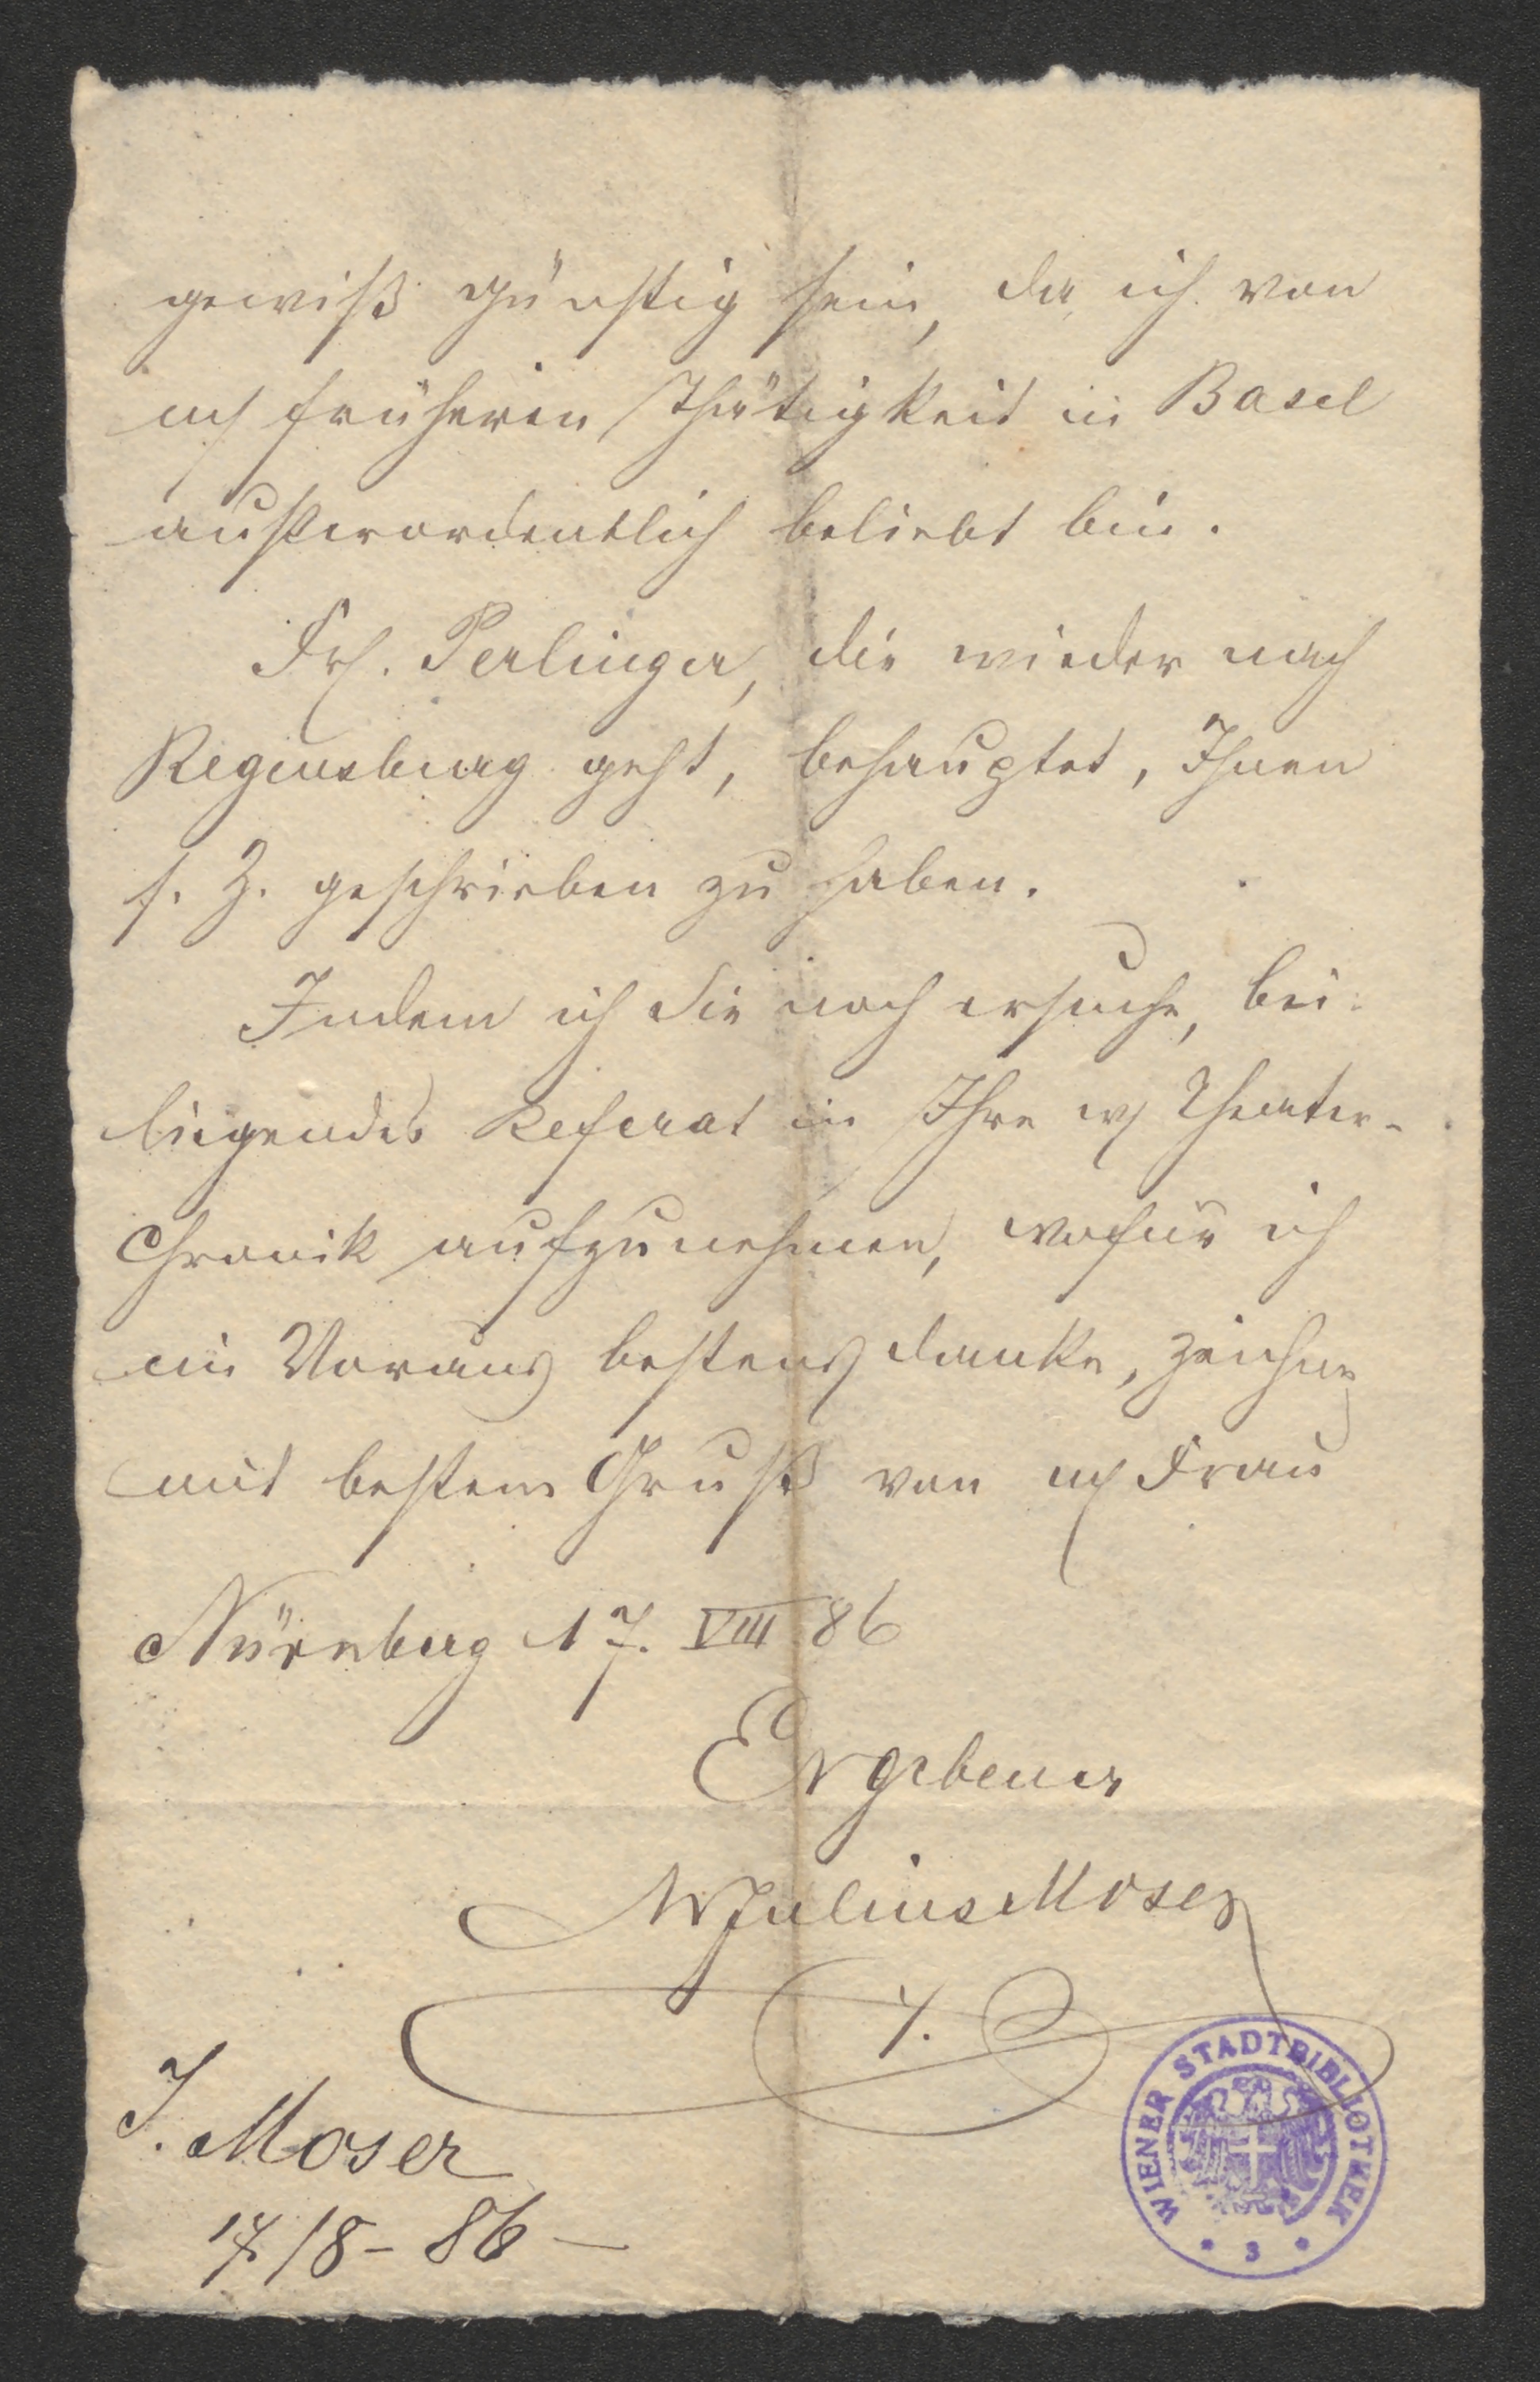 gewiß günstig sein, da ich von
m/ früheren Thätigkeit in Basel
außerordentlich beliebt bin.
Frl. Perlinger, die wieder nach
Regensburg geht, behauptet, Ihnen
s. Z. geschrieben zu haben.
Indem ich Sie noch ersuche, bei-
liegendes Referat in Ihre w/ Theater-
Chronik aufzunehmen, wofür ich
im Voraus bestens danke, zeichne
mit bestem Gruß von m/ Frau
Nürnberg 17. VIII 86
Ergebener
Julius Moser
J. Moser
17/8 - 86 -
WIENER STADTBIBLIOTHEK
* 3 *